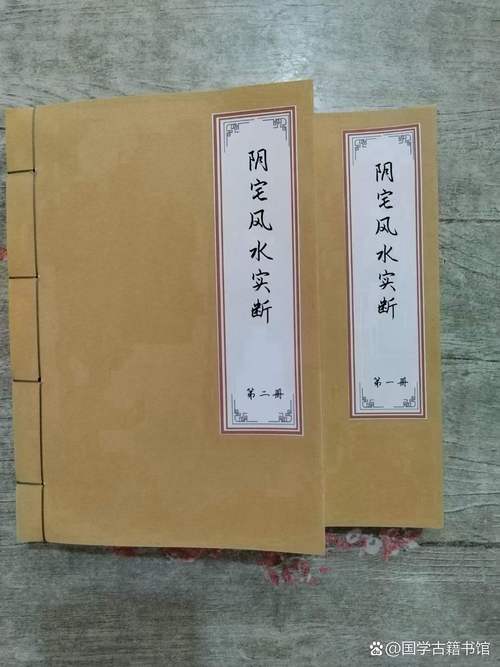 阴宅风水实断
第二册
阴宅风水实断
第一册
@国学古籍书馆